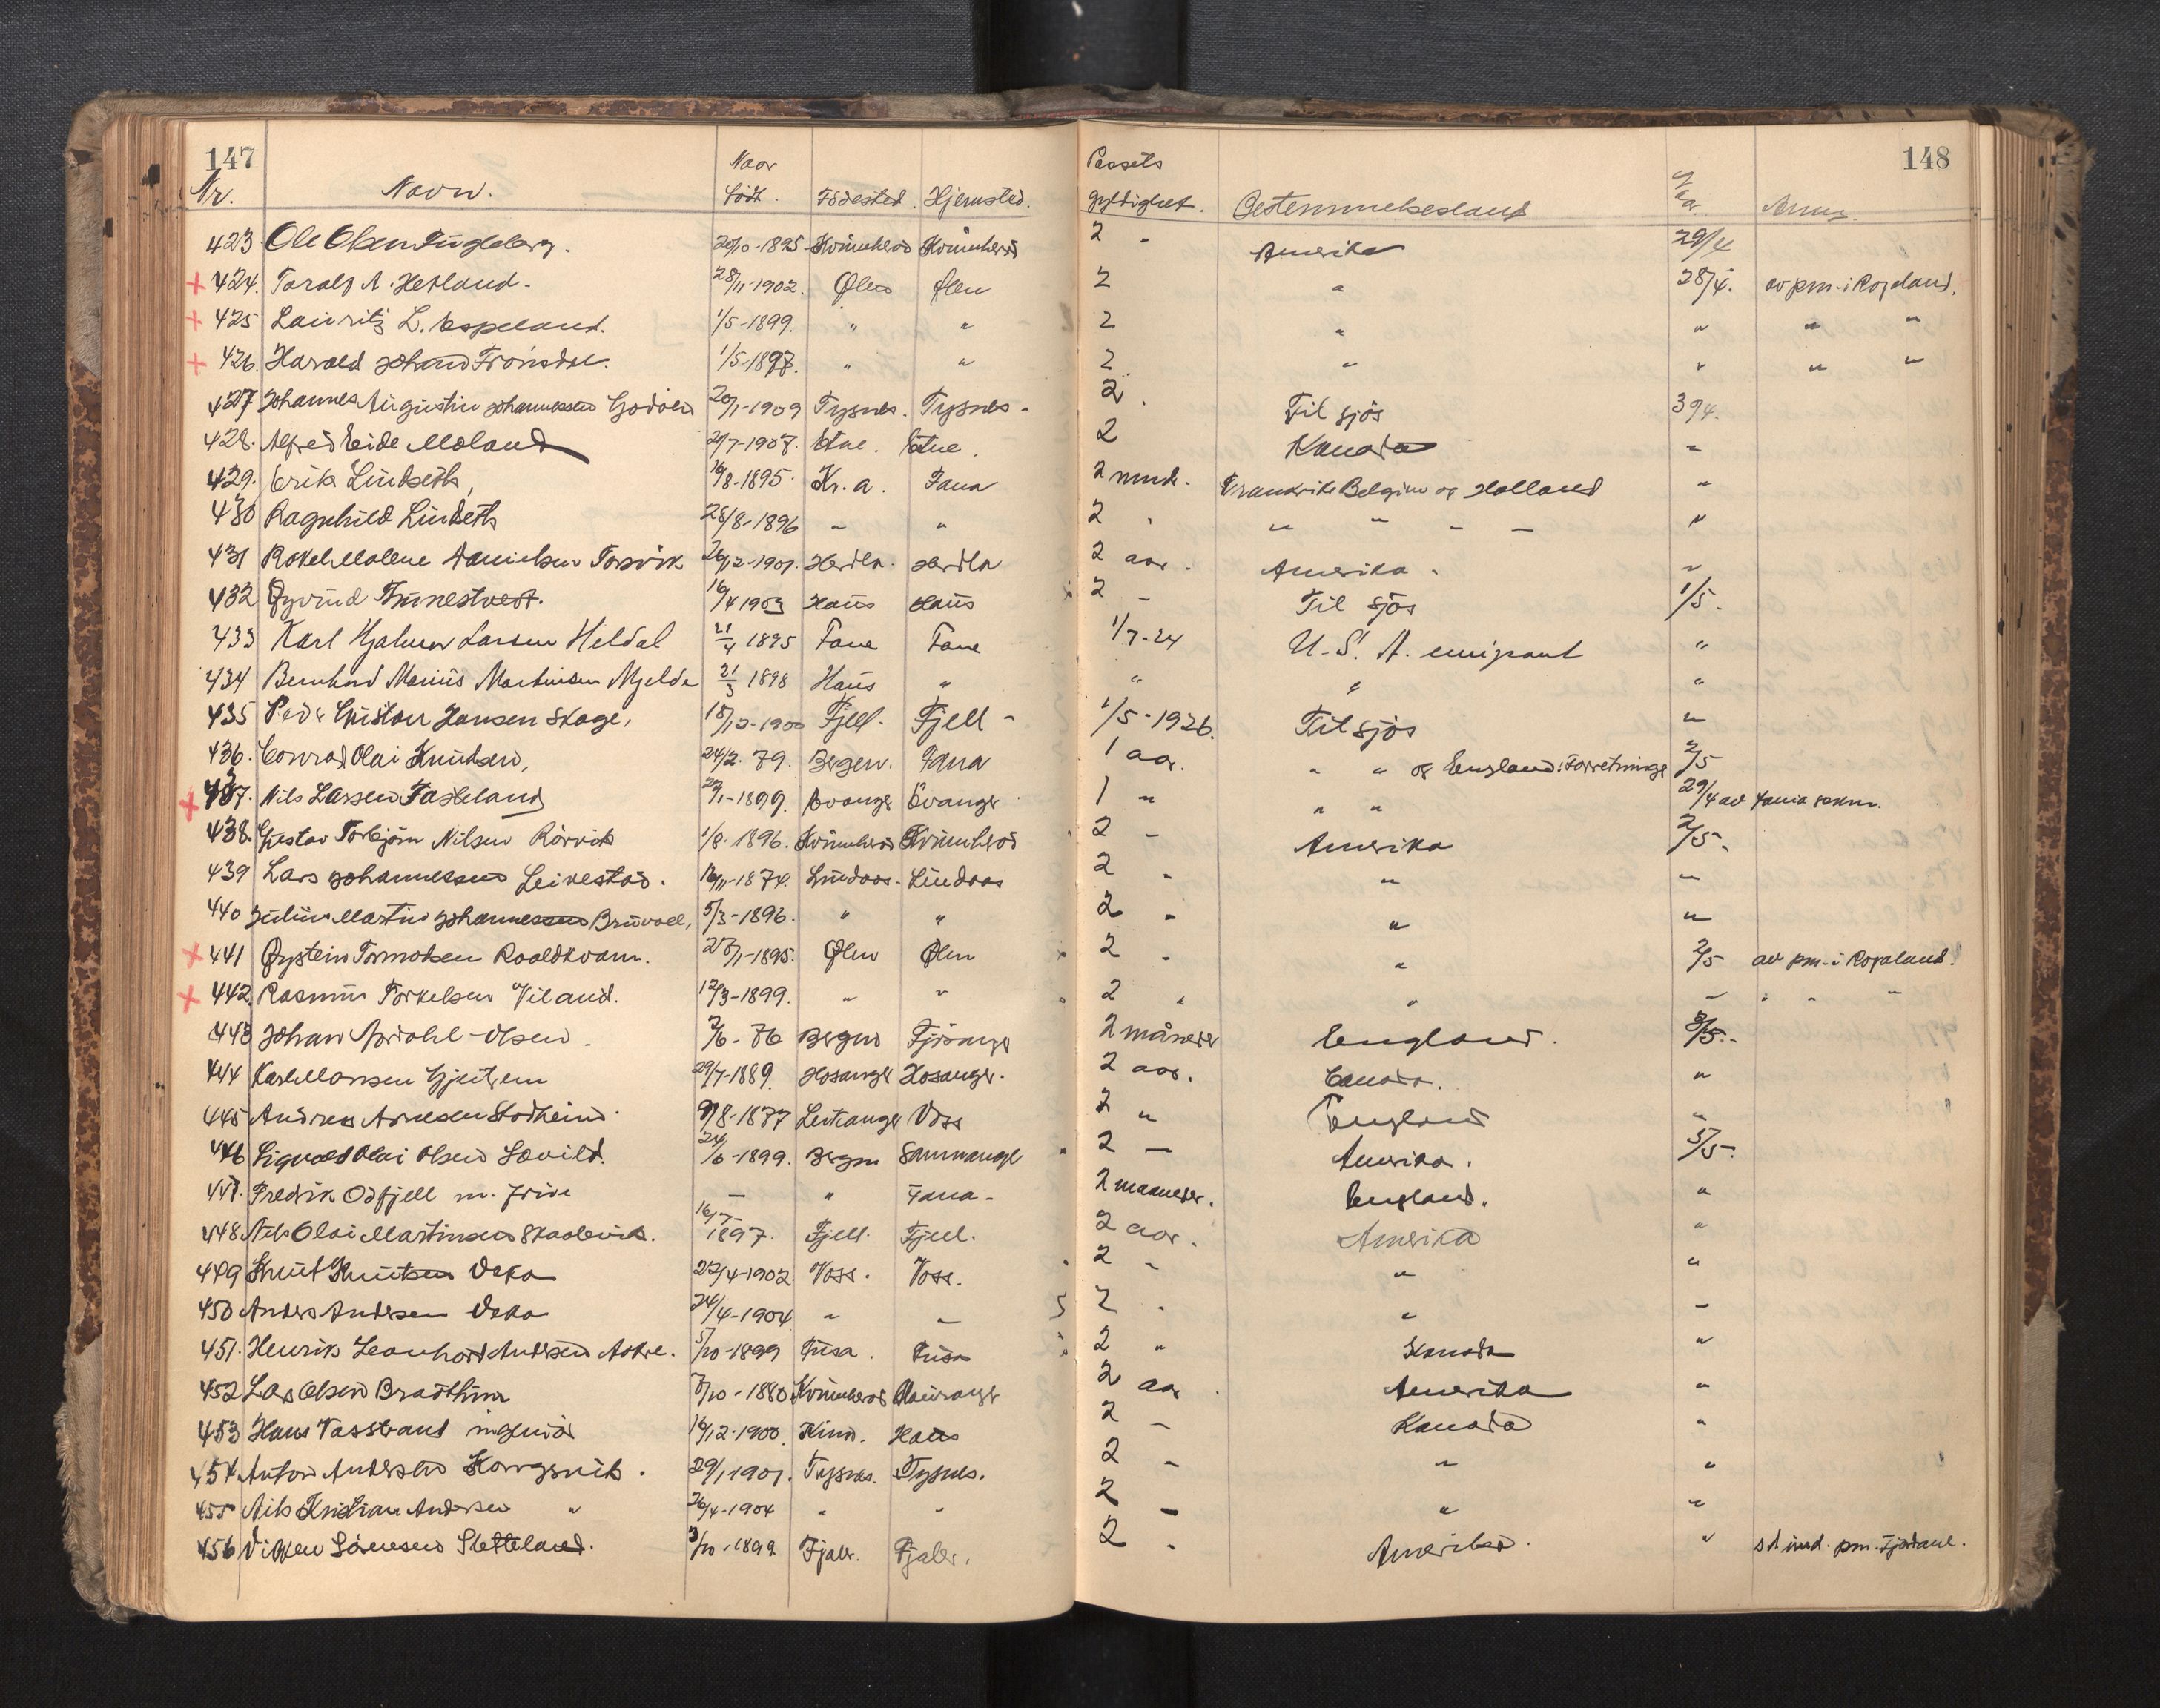 147 148
Nr. Navn. Naar født. Födested. Hjemsted. Passets gyldighet. Bestemmelsesland Anm.
423 Ole Olsen Fugleberg. 20/10-1895 Kvinnherad Kvinnherad 2 - Amerika 29/4
+ 424. Toralf A. Hetland. 28/11-1902. Ølen Ølen 2 " 28/4. av pm. i Rogaland.
+ 425 Lauritz L. Espeland. 1/5-1899. " " 2 " " " "
+ 426. Harald Johan Frønsdal. 1/5-1897. " " 2 " " " "
427 Johannes Augustin Johannessen Godøen 20/1-1909 Tysnes. Tysnes - 2. Til sjös 30/4.
428. Alfred Eide Moland 21/7-1907. Etne. Etne. 2 Kanada "
429. Erik Lindseth, 16/8-1895. Kr.a. Fana 2 mnd. Frankrike Belgien og Holland "
430 Ragnhild Lindseth 28/8-1896 " " 2 " " " " " "
431 Rakel Malene Danielsen Torsvik 26/12-1901. Herdla. Herdla 2 aar. Amerika. "
432 Øyvind Tunestveit. 16/4 1903 Haus Haus 2 - Til sjös 1/5.
433 Karl Hjalmar Larsen Heldal 21/4 1895 Fane Fane 1/7-24 U.S.A. emigrant "
434 Bernhard Marius Martinsen Mjelde 21/3 1898 Haus " " " "
435 Peder Gustav Jansen Skage, 18/12-1900 Fjell. Fjell - 1/5-1926. Til sjös "
436. Conrad Olai Knudsen, 24/2. 79. Bergen. Fana 1 aar. " " og England: Forretninge 2/5
+ 437. Nils Larsen Fasteland 29/1-1899. Evanger Evanger 1 " " " 29/4 av Fania sekm.
438. Gustav Torbjörn Nilsen Rörvik 1/8. 1896. Kvinnherad Kvinnherad 2 - Amerika 2/5.
439 Lars Johannessen Leivestad. 16/11-1874. Lindaas. Lindaas 2 - " "
440 Julius Martin Johannessen Bruvoll, 5/3-1896. " " 2 - " "
+ 441 Øystein Tormodsen Roaldkvam. 27/1-1895. Ølen Ølen 2 - " 2/5 av pm. i Rogaland.
+ 442 Rasmus Torkelsen Viland. 12/3-1899. " " 2 " " " " " "
443 Johan Olsen. 2/6-76 Bergen Fjösanger 2 måneder England. 3/5.
444 Karl Monsen Gjertsen 29/7-1889. Hosanger Hosanger. 2 aar. Canada. "
445 Andreas Arnesen Stadheim. 9/8-1877 Leikanger Voss 2 " England "
446 Sigvald Olai Olsen Løvild. 24/6-1899. Bergen Sammanger 2 - Amerika. 5/5.
447. Fredrik Odfjell m. frue - " Fana - 2 maaneder. England. "
448 Nils Olai Martinsen Skaalevik. 16/7-1897. Fjell. Fjell. 2 aar. Amerika "
449 Knut Knutsen Deka 22/4-1902. Voss. Voss. 2 - " "
450 Anders Andersen Deka 24/4-1904 " " 2 - " "
451. Henrik Leonhard Andersen Aakre. 5/10-1899 Fusa. Fusa 2 " Kanada "
452 Lars Olsen Bradthun 7/10-1880 Kvinnherad Mauranger 2 aar. Amerika "
453 Hans Vasstrand ingeniør 16/12-1900 Kinn. Haus 2 - Kanada "
454 Anton Andersen Korsgsvik. 29/1-1901. Tysnes. Tysnes. 2 - " "
455 Nils Kristian Andersen " 26/4-1904 " " 2 - " "
456 Viggen Sørensen Sletteland. 3/10-1899 Fjaler. Fjaler. 2 - Amerika. " pm. Fjordane.